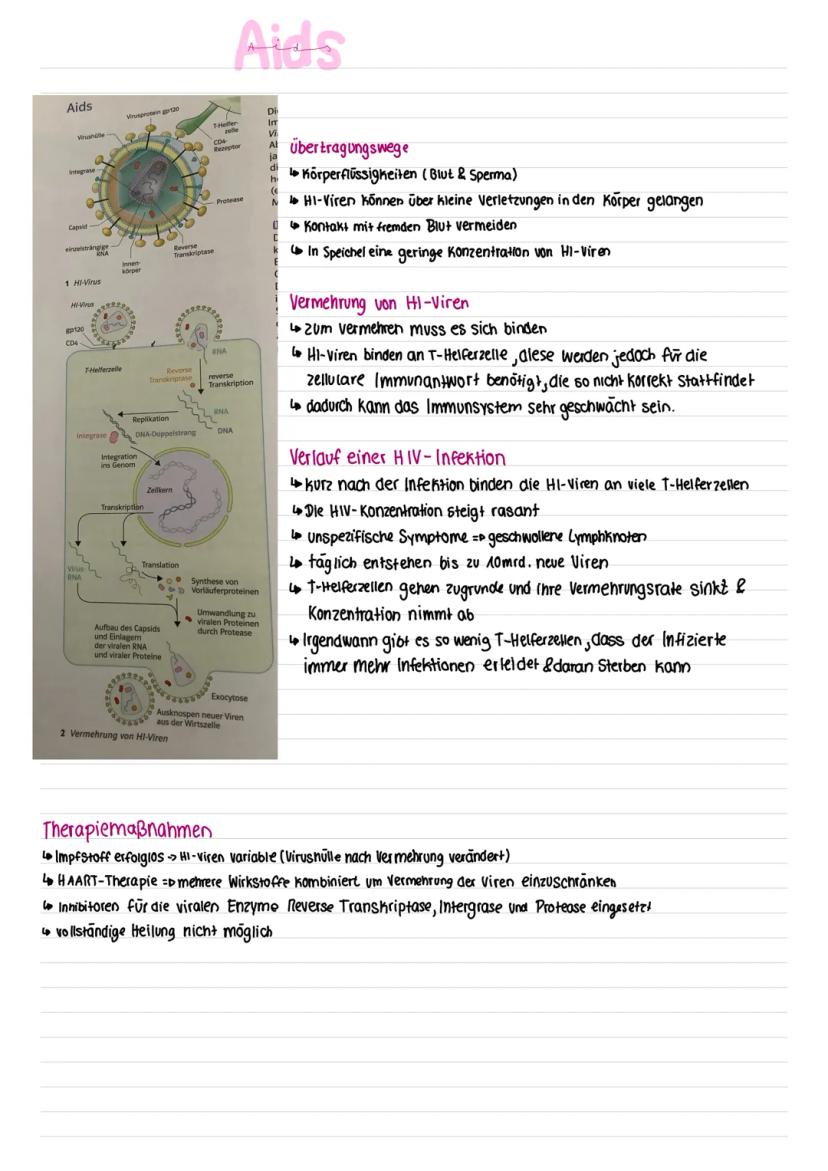 Aids
Aids
Aids
Virusprotein gp120
T-Helfer-
zelle
Virushülle
CD4-
Rezeptor
Integrase
Protease
Capsid
einzelsträngige
RNA
Reverse
Transkriptase
Innen-
körper
1 HI-Virus
HI-Virus
gp120
CD4
RNA
T-Helferzelle
Reverse
Transkriptase
reverse
Transkription
Replikation
RNA
Integrase
DNA-Doppelstrang
DNA
Integration
ins Genom
Zellkern
Transkription
Translation
Virus
RNA
Synthese von
Vorläuferproteinen
Umwandlung zu
viralen Proteinen
durch Protease
Aufbau des Capsids
und Einlagern
der viralen RNA
und viraler Proteine
Exocytose
Ausknospen neuer Viren
aus der Wirtszelle
2 Vermehrung von HI-Viren
Übertragungswege
↳ Körperflüssigkeiten (Blut & Sperma)
↳ HI-Viren können über kleine Verletzungen in den Körper gelangen
↳ Kontakt mit fremden Blut vermeiden
↳ In Speichel eine geringe Konzentration von HI-Viren
Vermehrung von HI-Viren
↳ zum vermehren muss es sich binden
↳ HI-Viren binden an T-Helferzelle, diese werden jedoch für die
zellulare Immunantwort benötigt, die so nicht korrekt stattfindet
↳ dadurch kann das Immunsystem sehr geschwächt sein.
Verlauf einer HIV-Infektion
↳ kurz nach der Infektion binden die HI-Viren an viele T-Helferzellen
↳ Die HIV-Konzentration steigt rasant
↳ unspezifische Symptome => geschwollene Lymphknoten
↳ täglich entstehen bis zu 10mrd. neue Viren
↳ T-Helferzellen gehen zugrunde und ihre Vermehrungsrate sinkt &
Konzentration nimmt ab
↳ Irgendwann gibt es so wenig T-Helferzellen, dass der Infizierte
immer mehr Infektionen erleidet & daran sterben kann
Therapiemaßnahmen
↳ Impfstoff erfolglos -> HI-Viren variable (Virushülle nach Vermehrung verändert)
↳ HAART-Therapie => mehrere Wirkstoffe kombiniert um Vermehrung der Viren einzuschränken
↳ Inhibitoren für die viralen Enzyme Reverse Transkriptase, Intergrase und Protease eingesetzt
↳ vollständige Heilung nicht möglich